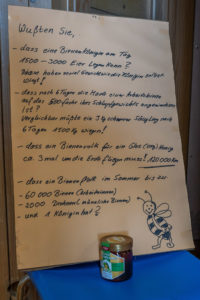 Wußten Sie,
- dass eine Bienenkönigin am Tag
1500 - 3000 Eier legen kann?
Diese haben soviel Gewicht wie die Königin selbst
wiegt!
- dass nach 6 Tagen die Made einer Arbeitsbiene
auf das 500fache ihres Schlupfgewichts angewachsen
ist?
Vergleichbar müßte ein 3 kg schwerer Säugling nach
6 Tagen 1500 kg wiegen!
- dass ein Bienenvolk für ein Glas (500g) Honig
ca. 3 mal um die Erde fliegen muss? 120.000 km
- dass ein Bienenvolk im Sommer bis zu:
- 60 000 Bienen (Arbeiterinnen)
- 2000 Drohnen (männliche Bienen)
- und 1 Königin hat?